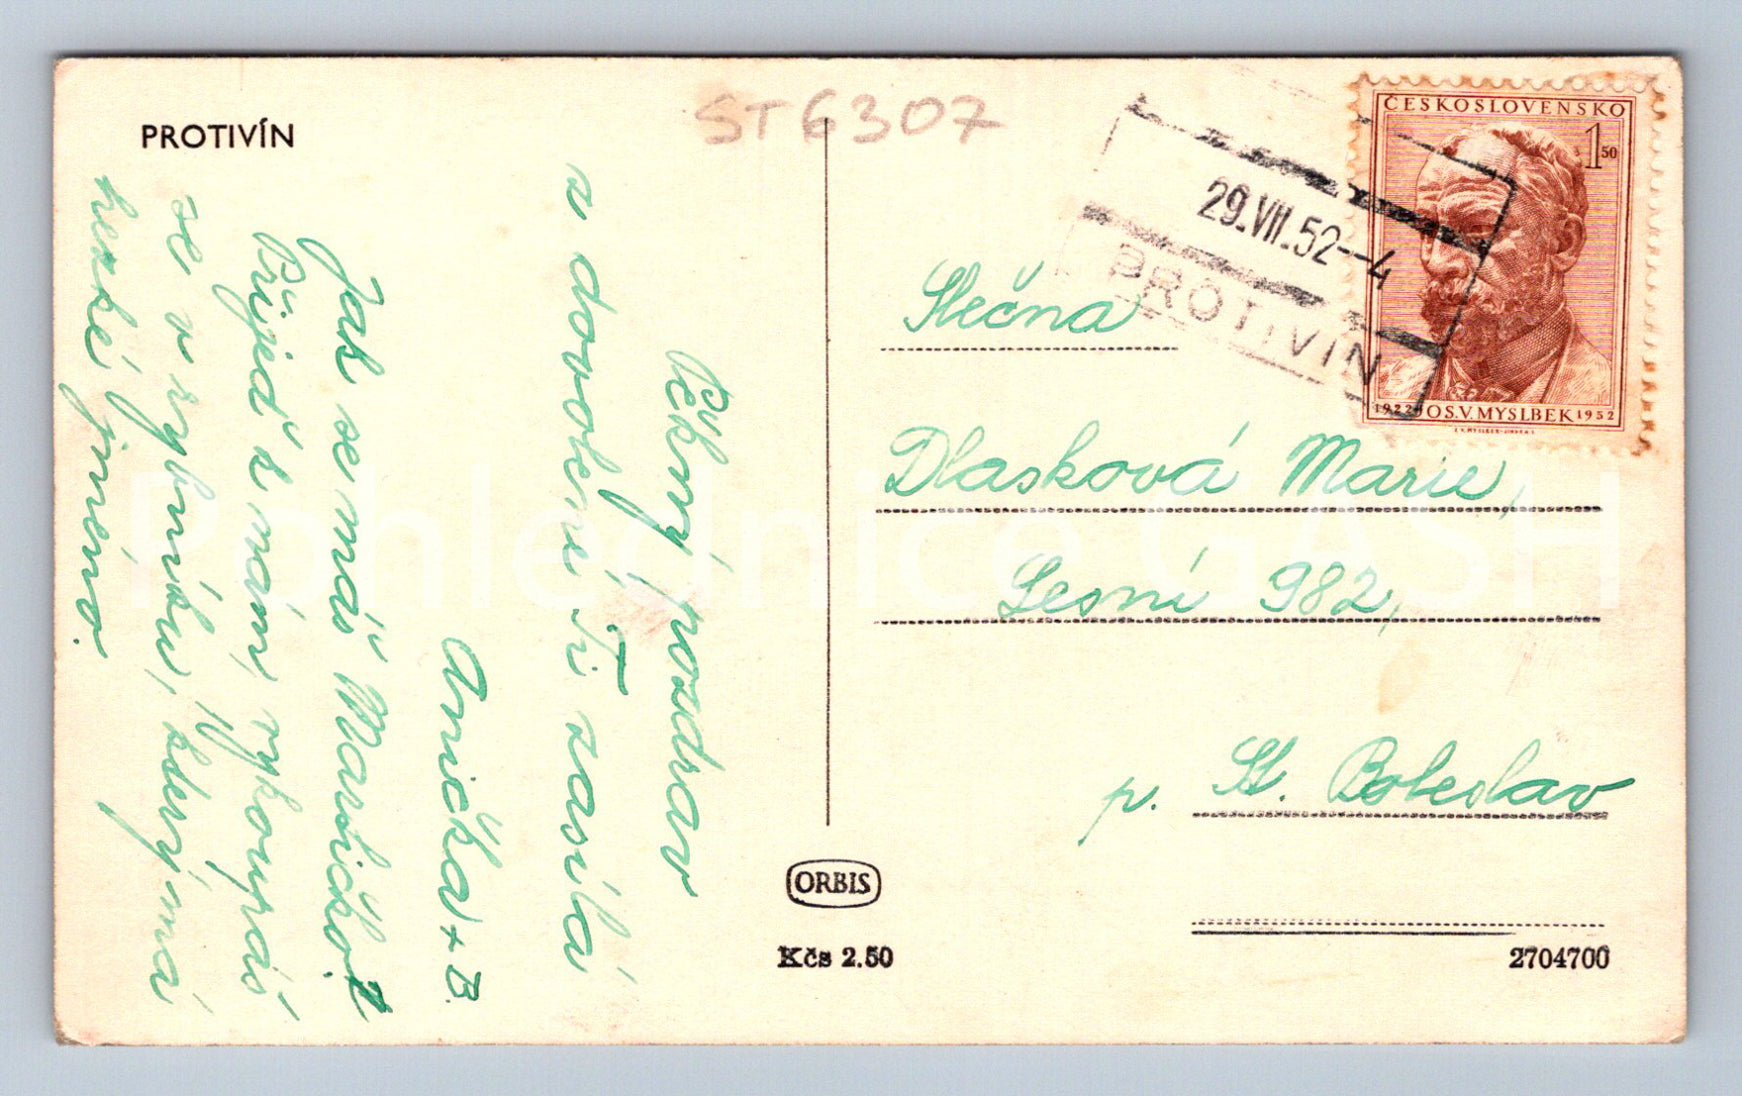 PROTIVÍN
ST6307
Pěkný pozdrav
z dovolené Ti zasílá
Anička + B.
Jak se máš Maruško?
Přijeď k nám, vykoupáš
se v rybníku, který má
hezké jméno.
Slečna
Dlasková Marie,
Lesní 982,
p. St. Boleslav
ORBIS
Kčs 2.50
2704700
ČESKOSLOVENSKO
1 50
1922 JOS.V.MYSLBEK 1952
29.VII.52--4
PROTIVÍN
Pohlednice GASH